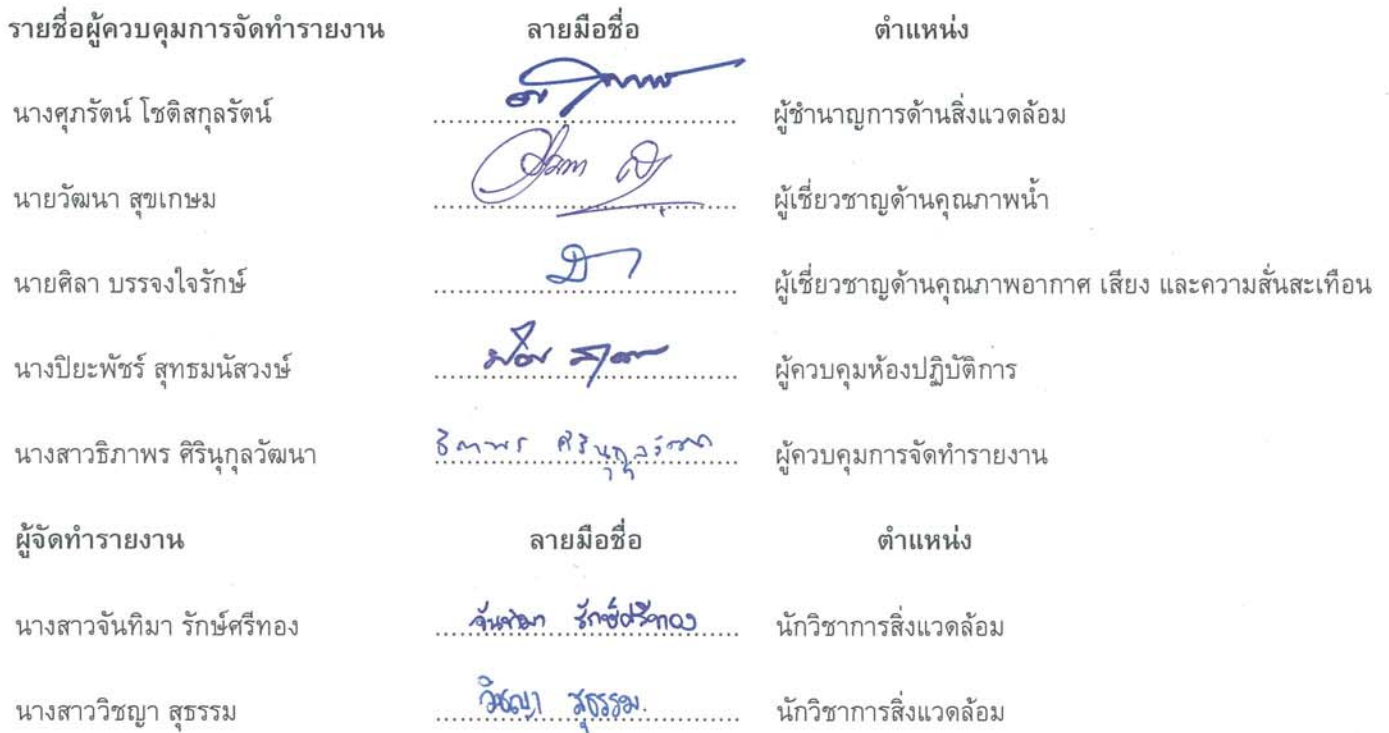 รายชื่อผู้ควบคุมการจัดทำรายงาน ลายมือชื่อ ตำแหน่ง
นางศุภรัตน์ โชติสกุลรัตน์ ผู้ชำนาญการด้านสิ่งแวดล้อม
นายวัฒนา สุขเกษม ผู้เชี่ยวชาญด้านคุณภาพน้ำ
นายศิลา บรรจงใจรักษ์ ผู้เชี่ยวชาญด้านคุณภาพอากาศ เสียง และความสั่นสะเทือน
นางปิยะพัชร์ สุทธมนัสวงษ์ ผู้ควบคุมห้องปฏิบัติการ
นางสาวธิภาพร ศิรินุกุลวัฒนา ธิภาพร ศิรินุกุลวัฒนา ผู้ควบคุมการจัดทำรายงาน
ผู้จัดทำรายงาน ลายมือชื่อ ตำแหน่ง
นางสาวจันทิมา รักษ์ศรีทอง จันทิมา รักษ์ศรีทอง นักวิชาการสิ่งแวดล้อม
นางสาววิชญา สุธรรม วิชญา สุธรรม. นักวิชาการสิ่งแวดล้อม